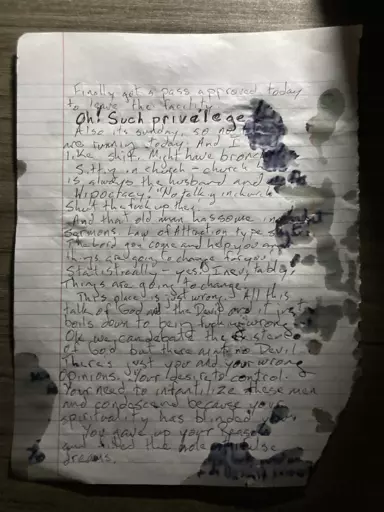 Finally got a pass approved today
to leave the facility
Oh! Such privelege
Also its sunday, so no
are running today. And I
like shit. Might have bronc
Sitting in church - church
is always the husband and
Hipocracy. "No talking in church
Shut the fuck up then.
And that old man has some
sermons. Law of Attraction type
The lord gon come and help you and
things are going to change today.
Statistically - yes. Inevitably,
Things are going to change.
This place is just wrong. All this
talk of God and the Devil and it just
boils down to being fucking wrong.
Ok we can debate the existence
of God but there aint no Devil
There's just you and your wrong
opinions. Your desire to control.
Your need to infantilize these men
and condescend because your
spirituality has blinded you.
You gave up your reason
and filled the hole with
dreams.